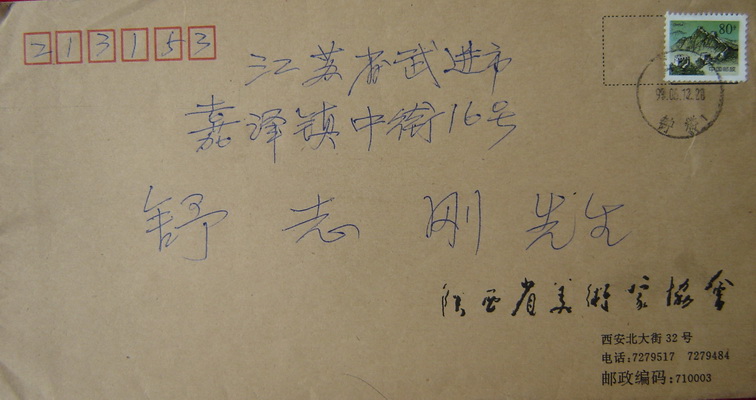 213153
80分
江苏省武进市
99.06.12.20
嘉泽镇中街16号
舒志刚先生
陕西省美术家协会
西安北大街 32 号
电话:7279517 7279484
邮政编码:710003